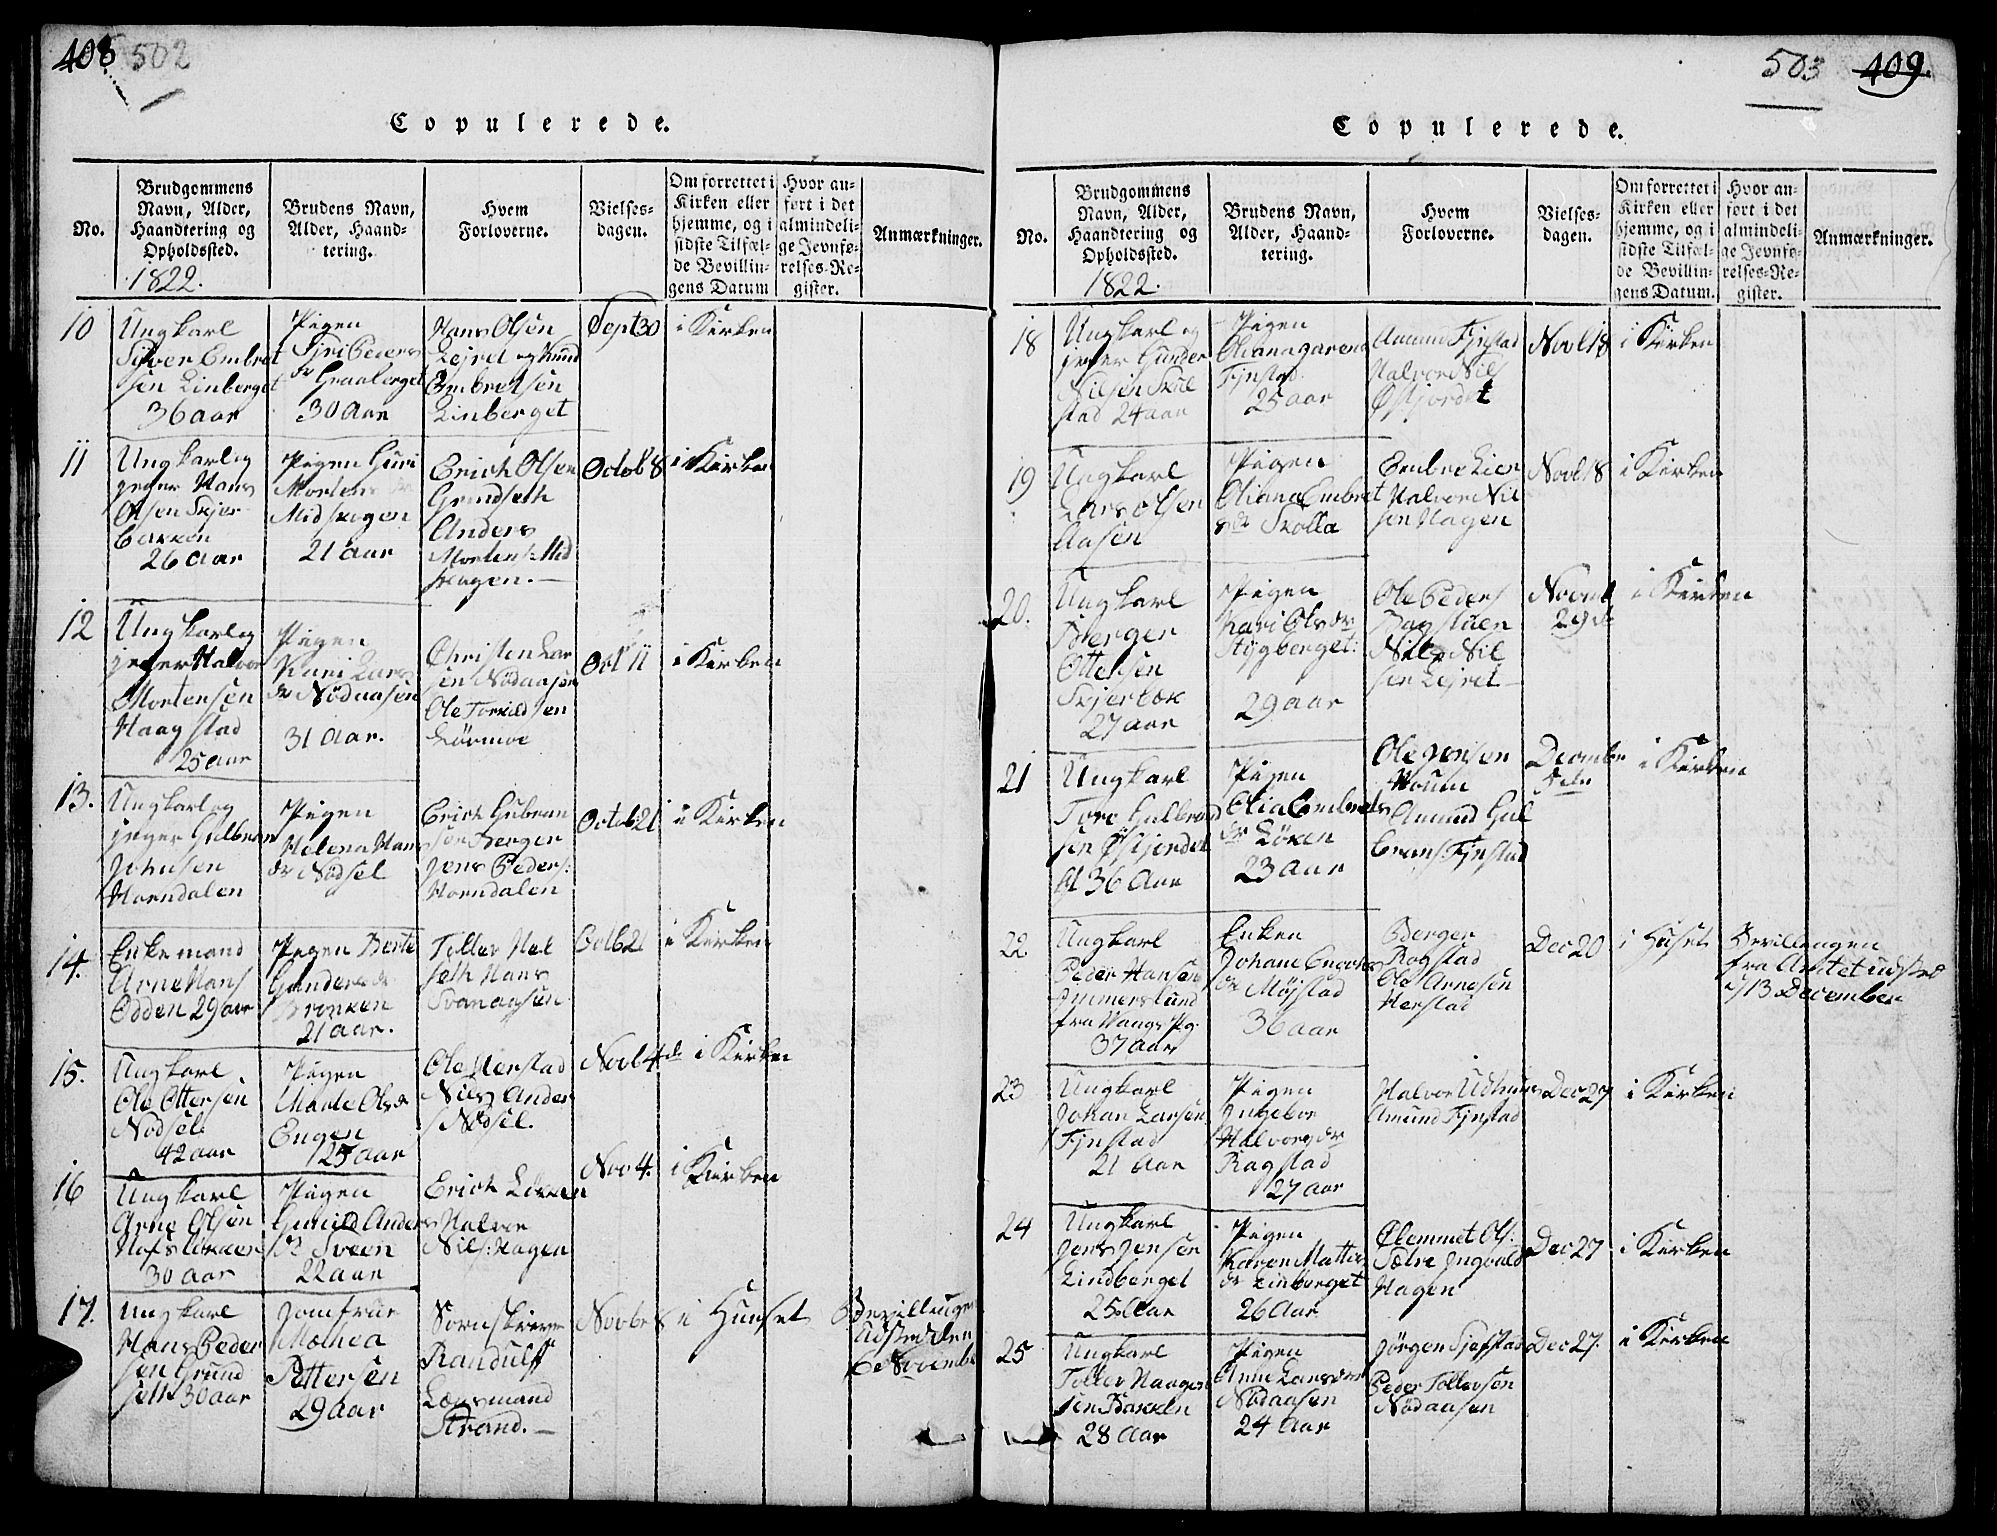 408 502
Copulerede.
No.
Brudgommens
Navn, Alder,
Haandtering og
Opholdssted.
1822.
Brudens Navn,
Alder, Haand-
tering.
Hvem
Forloverne.
Vielses-
dagen.
Om forrettet i
Kirken eller
hjemme, og i
sidste Tilfæl-
de Bevillin-
gens Datum
Hvor an-
ført i det
almindeli-
ge Jevnfø-
relses-Re-
gister.
Anmærkninger.
10
Ungkarl
Embret
sen Linberget
36 aar
Pigen
Peders
dr Graaberget
30 Aar
Hans Olsen
Lejret og Knud
Embretsen
Linberget
Sept 30
i Kirken
11
Ungkarl og
jeger Hans
Olsen Skjer
bekken
26 aar
Pigen Guri
Mortens dr
Midskogen
21 aar
Erich Olsen
Grundseth
Anders
Mortens: Mid
skogen.
Octob 8
i Kirken
12
Ungkarl og
jeger Halvor
Mortensen
Haagstad
25 aar
Pigen
Kari Lars
dr Nødaasen
31 Aar.
Christen Lar
sen Nødaasen
Ole Torkildsen
Lørmoe
Oct 11
i Kirken
13.
Ungkarl og
jeger Gulbran
Johnsen
Horndalen
Pigen
Helena Hans
dr Nødsel
Erich Gubran
sen Berger
Jens Peders:
Horndalen
Octob 21
i Kirken
14.
Enkemand
Arne Hans
Odden 29 aar
Pigen Berte
Gunders dr
21 aar.
Toller Hel
seth Hans
Svenaasen
Octb 21
i Kirken
15.
Ungkarl
Ole Ottersen
Nødsel
42 aar
Pigen
Marte Ols dr
Engen
25 aar
Ole Herstad
Niels Anders
Nødsel.
Novb 4de
i Kirken
16
Ungkarl
Arne Olsen
Hofsløkken
30 aar
Pigen
Gunild Anders
dr Sveen
22 aar
Erich Løken
Halvor
Nils: Hagen
Nov 4.
i Kirken
17.
Ungkarl
Hans Peder
sen Grund
seth 30 aar
Jomfrue
Pettersen
29 aar
Sornskriver
Randulff
Lænsmand
Strand.
Novbe 8
i Huuset
Bevillingen
udstedt den
6de Novembr
503 409.
Copulerede.
No.
Brudgommens
Navn, Alder,
Haandtering og
Opholdssted.
1822.
Brudens Navn,
Alder, Haand-
tering.
Hvem
Forloverne.
Vielses-
dagen.
Om forrettet i
Kirken eller
hjemme, og i
sidste Tilfæl-
de Bevillin-
gens Datum.
Hvor an-
ført i det
almindeli-
ge Jevnfø-
relses-Re-
gister.
Anmærkninger.
18
Ungkarl og
jeger Gunder
Nilsen Skul
stad 24 aar
Pigen
Fjnstad
25 aar
Amund Fjnstad
Halvor Nils
Østjordet
Novb 18
i Kirken
19
Ungkarl
Lars Olsen
Aasen
Pigen
Oliana Embret
s dr Skolla
Embre Lier
Halvor Nil
sen Hagen
Novb 18
i Kirken
20.
Ungkarl
Berger
Ottersen
Skjerbæk
27 aar
Pigen
Kari Ols dr
Stygberget:
29 aar
Ole Peders
Nils Nil
sen Lejret
Novmb
29de
i Kirken
21
Ungkarl
Tore Gulbrand
sen Østjordet
36 Aar
Pigen
Olia Embrets
dr Løken
23 aar
Ole Jensen
Amund Gul
brans: Fjnstad
Decembr
5de
i Kirken
22
Ungkarl
Peder Hansen
Immerslund
fra Vangs Pg.
37 aar
Enken
Johane Enochs
dr Møjstad
36 aar
Berger
Rogstad
Ole Arnesen
Herstad
Dec 20
i Huset
Bevillingen
fra Amtet udsted
13 December
23
Ungkarl
Johan Larsen
Fjnstad
21 Aar
Pigen
Ingebor
Halvors dr
Ragstad
27 aar
Halvor Udhuus
Amund Fjnstad
Dec 27
i Kirken
24
Ungkarl
Jens Jensen
Lindberget
25 Aar
Pigen
Karen Matties
dr Linberget
26 Aar
Clemmet Ols:
Sætre Ingvald
Hagen
Dec 27
i Kirken
25
Ungkarl
Toller Haagen
sen Bakken
28 Aar
Pigen
Anne Lars dr
Nødaasen
24 Aar
Jørgen Sjøstad
Peder Tollersen
Nødaasen
Dec 27.
i Kirken